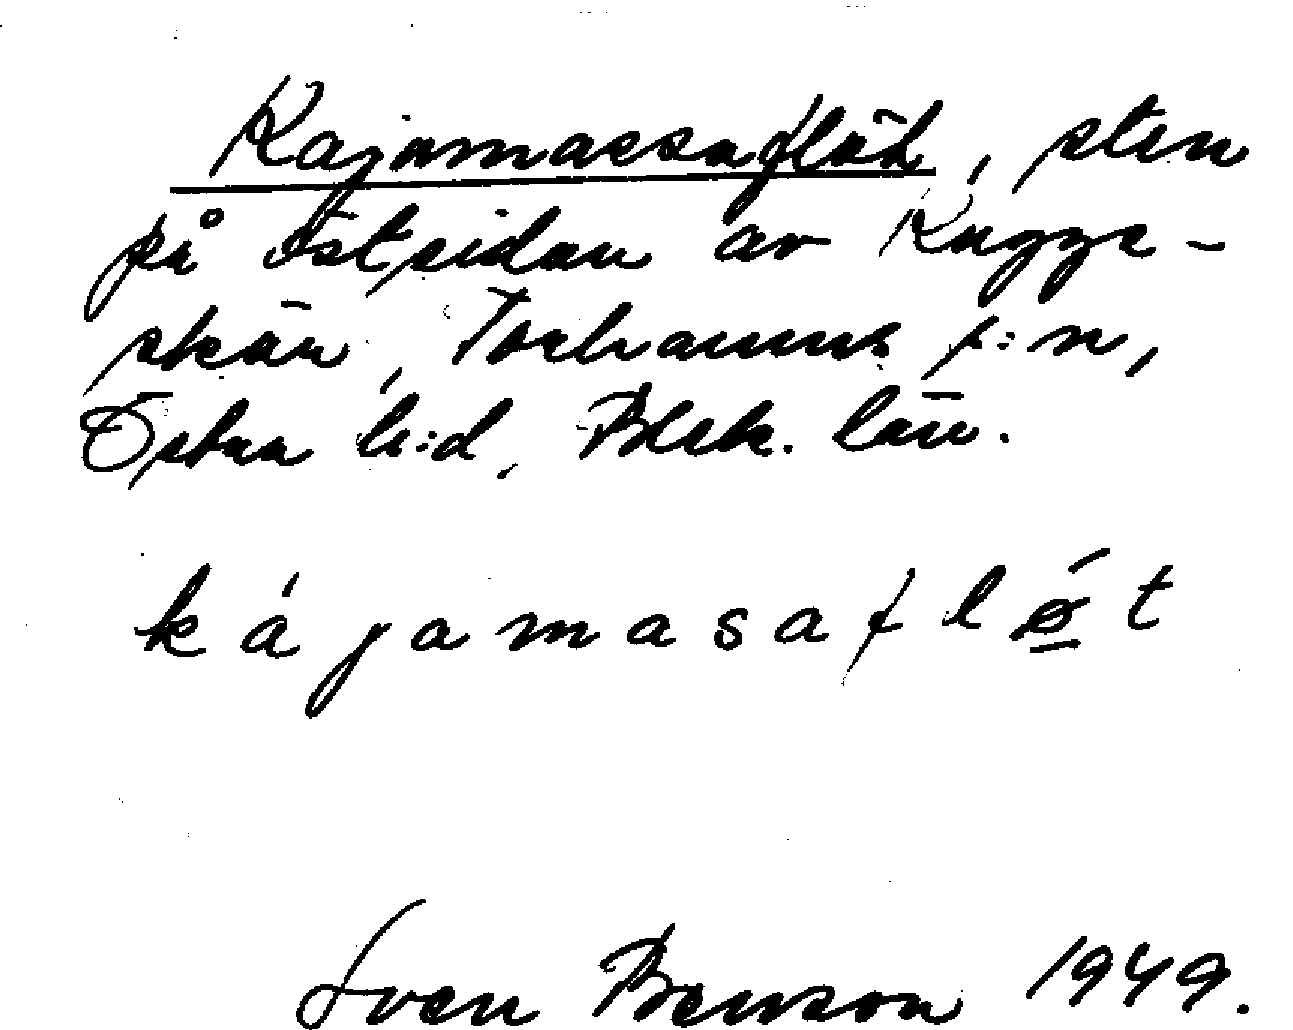 Kajamassaflöt, sten
på östsidan av Kugge-
skär, Torhamns s:n,
Östra h:d, Blek. län.
kájamasaflǿt
Sven Benson 1949.